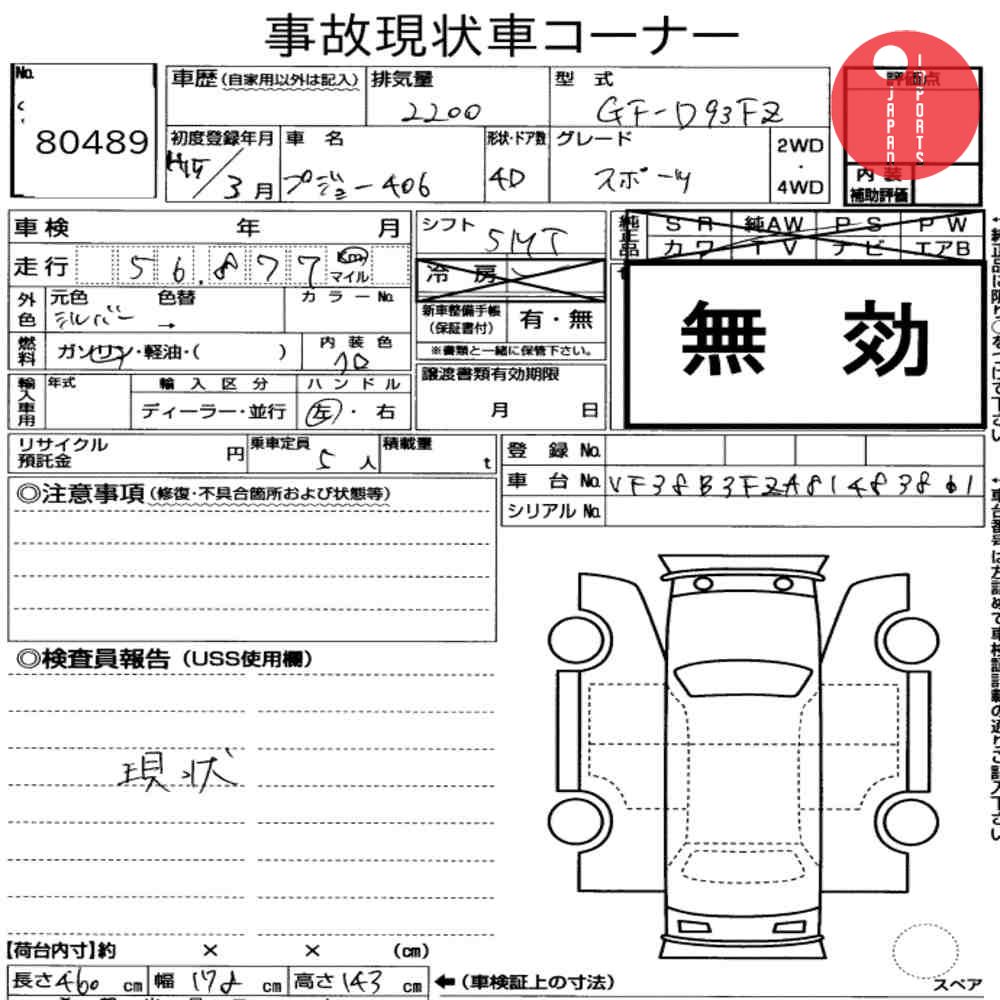 事故現状車コーナー
JAPAN IMPORTS
No.
80489
車歴(自家用以外は記入)
排気量
2200
型 式
GF-D93FZ
評価点
初度登録年月
H15/3月
車 名
プジョー406
形状・ドア数
4D
グレード
スポーツ
2WD
・
4WD
内装
補助評価
車検 年 月
シフト
5MT
純正品
SR 純AW PS PW
カワ TV ナビ エアB
走行 56.877 km マイル
冷 房
外色
元色 色替
シルバー →
カラーNo.
新車整備手帳
(保証書付)
有・無
※書類と一緒に保管下さい。
無 効
燃料
ガソリン・軽油・( )
内装色
クロ
輸入車用
年式
輸入区分
ディーラー・並行
ハンドル
左・右
譲渡書類有効期限
月 日
リサイクル
預託金
円
乗車定員
5人
積載量
t
登 録 No.
車 台 No. VF38B3FZA81483861
シリアル No.
◎注意事項(修復・不具合箇所および状態等)
◎検査員報告(USS使用欄)
現状
【荷台内寸】約 × × (cm)
長さ460cm 幅178cm 高さ143cm
←(車検証上の寸法)
スペア